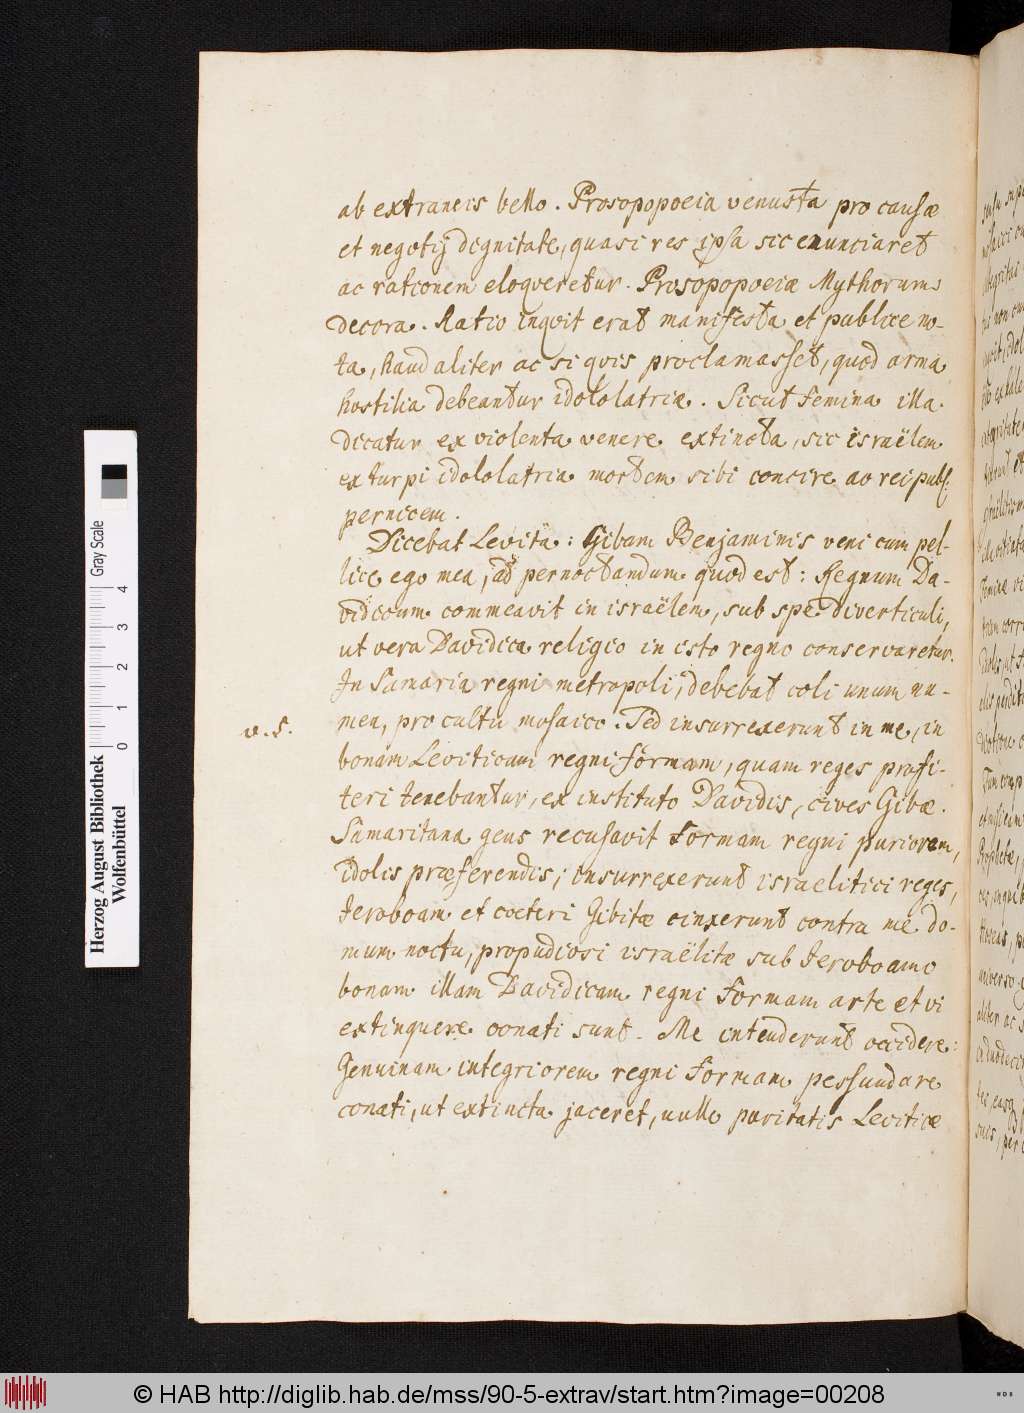 ab extraneis bello. Prosopopoeia venusta pro causæ
et negotij dignitate, quasi res ipsa sic enunciaret
ac rationem eloqveretur. Prosopopoeiæ Mythorum
decora. Ratio inqvit erat manifesta et publice no-
ta, haud aliter ac si qvis proclamasset, quod arma
hostilia debeantur idololatriæ. Sicut femina illa
dicatur ex violenta venere extincta, sic israëlem
ex turpi idololatria mortem sibi concire ac reipubl.
perniciem.
Dicebat Levita: Gibam Benjaminis veni cum pel-
lice ego mea, ad pernoctandum quod est: Regnum Da-
vidicum commeavit in israëlem, sub spe diverticuli,
ut vera Davidica religio in isto regno conservaretur.
In Samaria regni metropoli, debebat coli unum nu-
v. 5.
men, pro cultu mosaico. Sed insurrexerunt in me, in
bonam Leviticam regni formam, quam reges profi-
teri tenebantur, ex instituto Davidis, cives Gibæ.
Samaritana gens recusavit formam regni puriorem,
idolis præferendis; insurrexerunt israelitici reges,
Jeroboam et coeteri Gibitæ cinxerunt contra me do-
mum noctu, propudiosi israëlitæ sub Jeroboamo
bonam illam Davidicam regni formam arte et vi
extinquere conati sunt. Me intenderunt occidere:
Genuinam integriorem regni formam pessundare
conati, ut extincta jaceret, nullo puritatis Leviticæ
Herzog August Bibliothek
Wolfenbüttel
0 1 2 3 4
Gray Scale
© HAB http://diglib.hab.de/mss/90-5-extrav/start.htm?image=00208